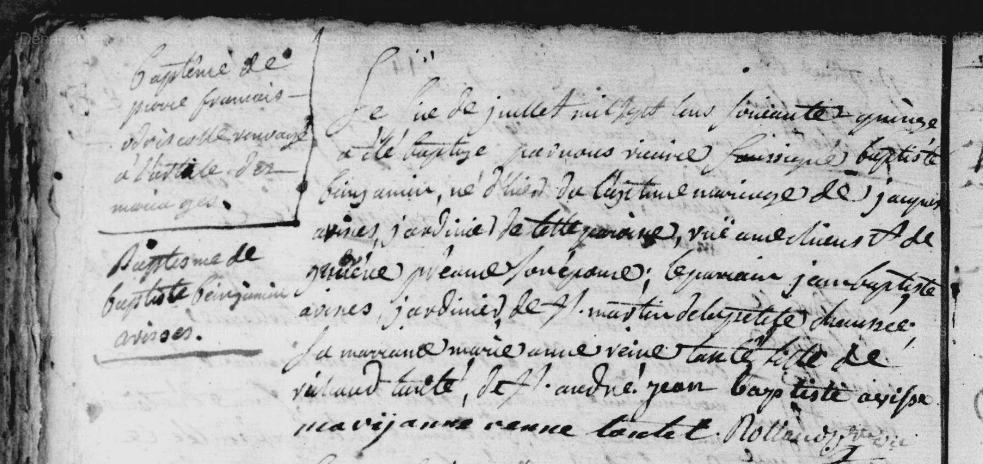 baptême de
pierre francois
à l'article des
mariages.
Baptisme de
baptiste bénjamin
avisses.
Le six de juillet mil sept cens soixante quinze
a été baptizé par nous vicaire soussigné baptiste
binjamin, né d'hier du légitime mariage de jacques
avisses, jardinier de cette paroisse, rüe aux chiens et de
son épouse; le parrain jean baptiste
avisses, jardinier, de st. martin de la petite chaussée;
la marraine marie anne reine tanté fille de
tanté, de st. andré. jean baptiste avisse
marijanne renne tantet. Rolland